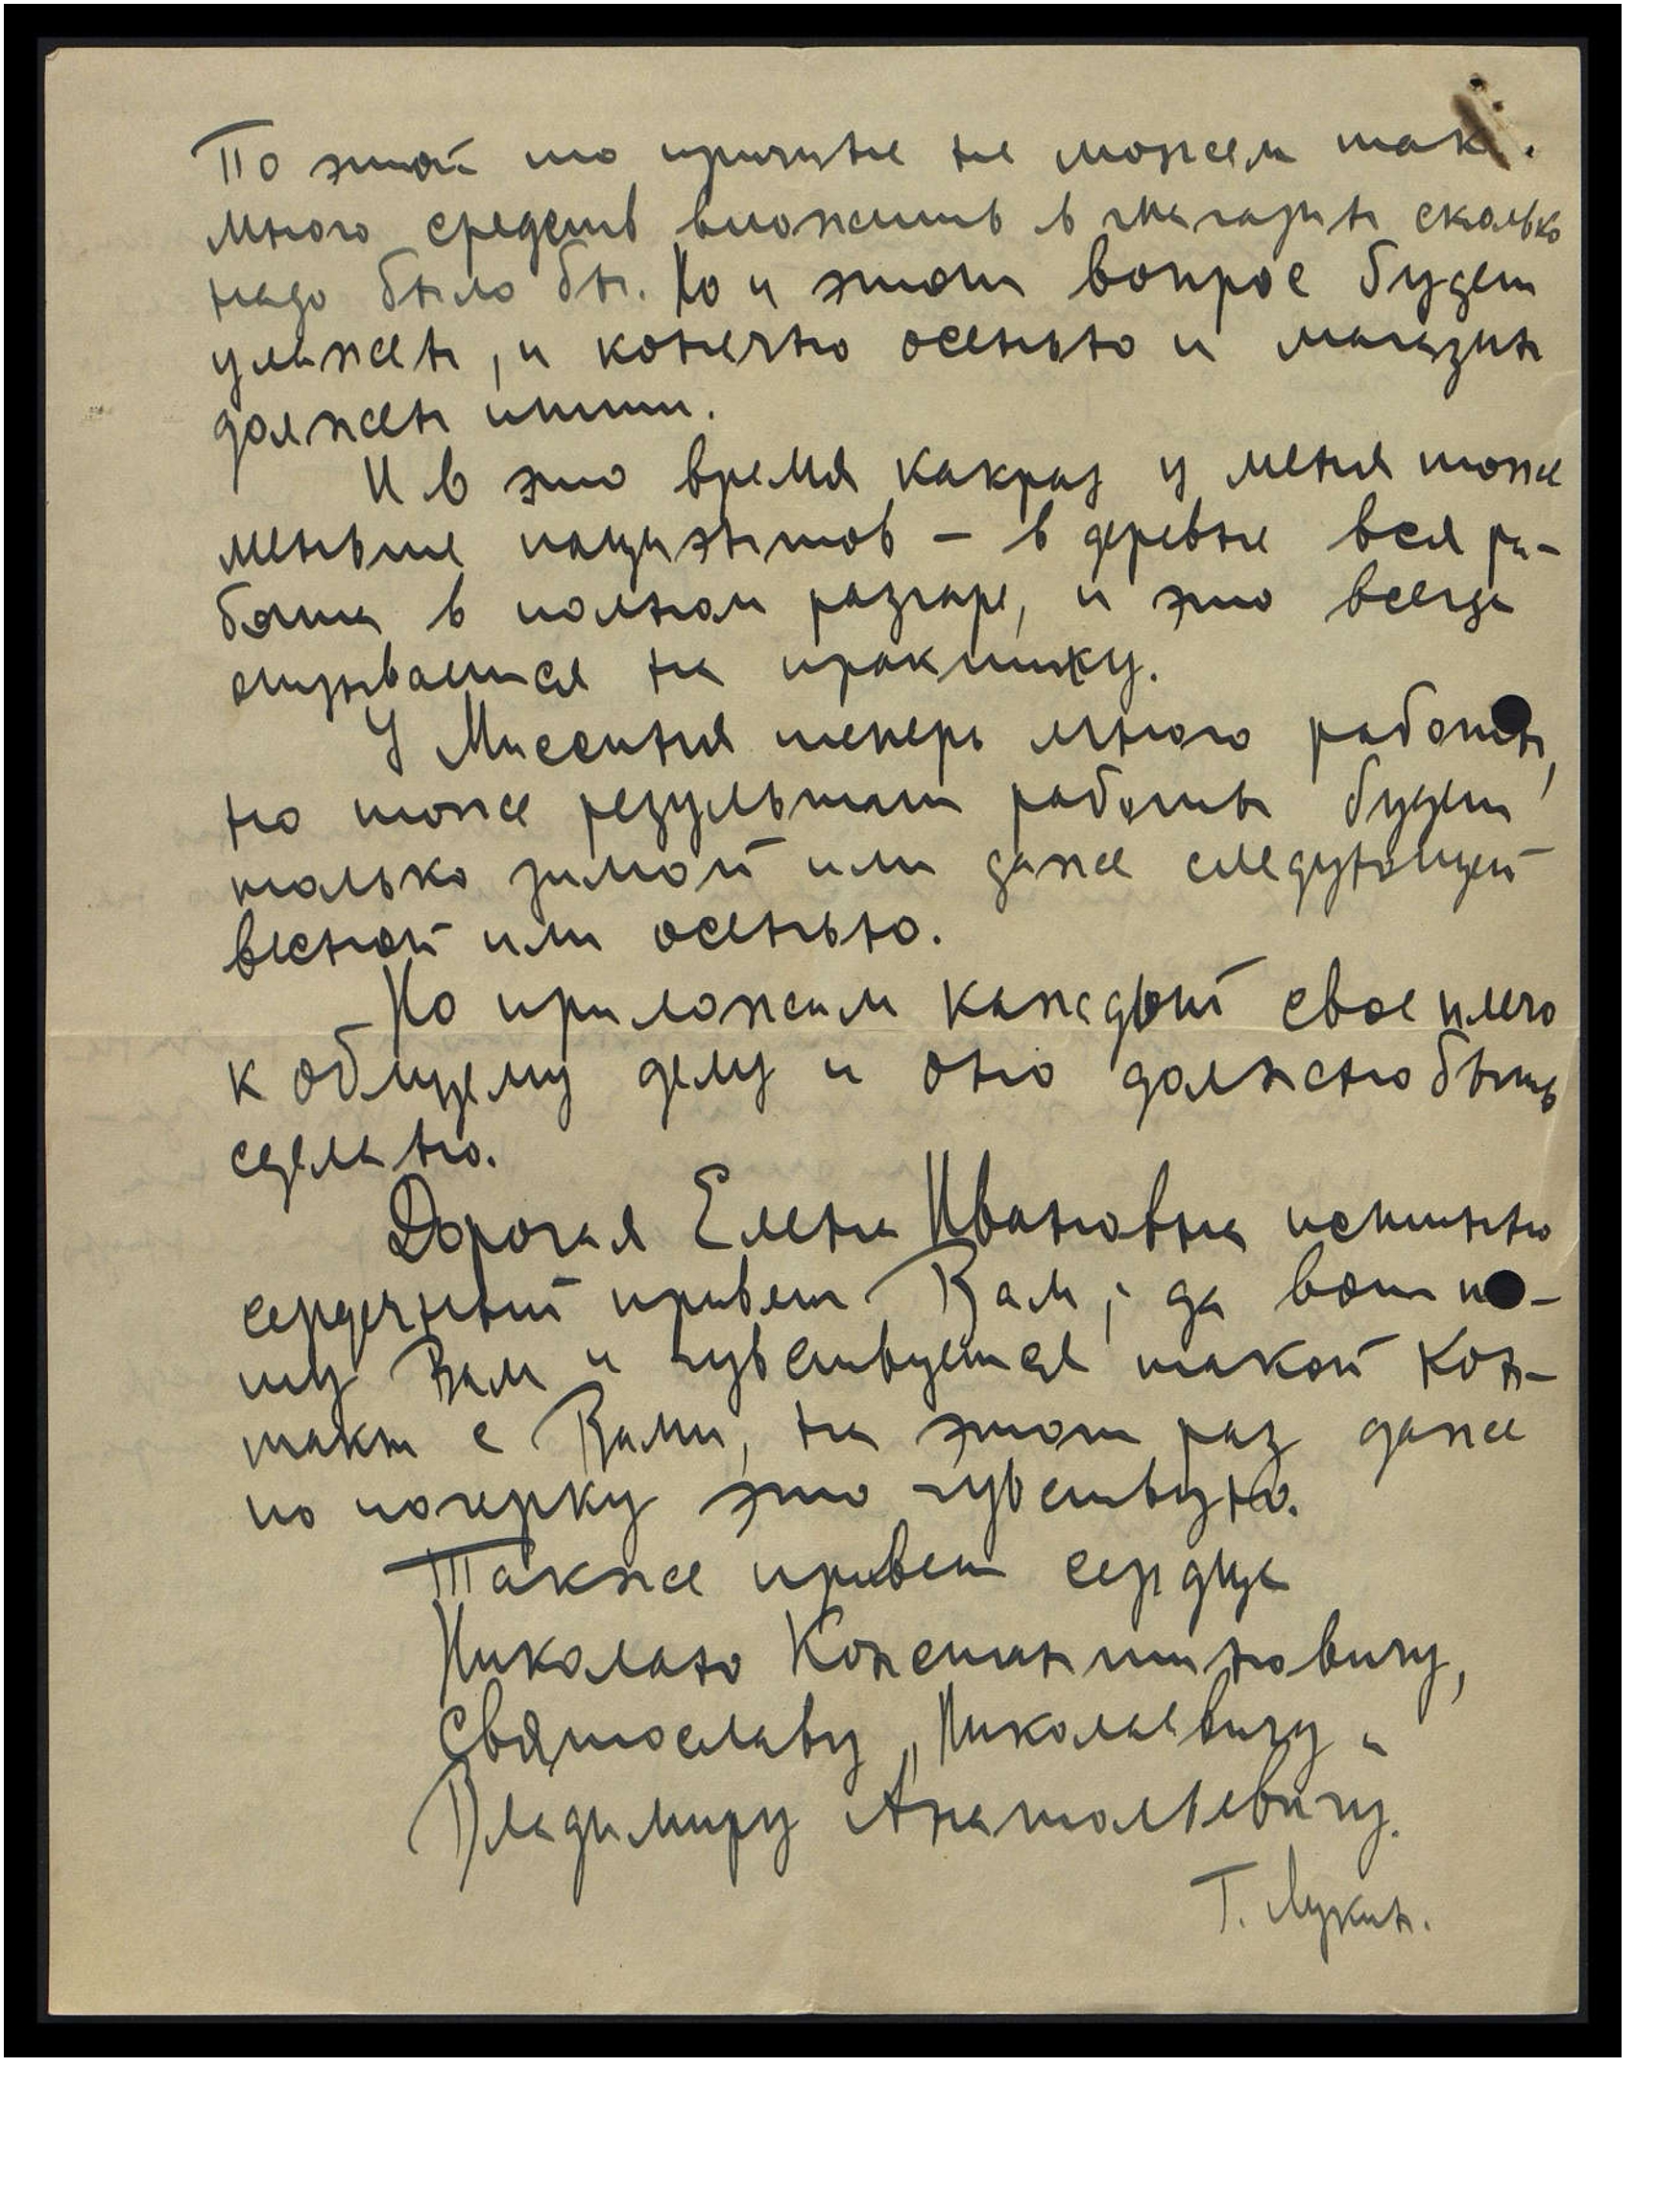 По этой то причине не можем так
много средств вложить в магазин сколько
надо было бы. Но и этот вопрос будет
улажен, и конечно осенью и магазин
должен итти.
И в это время какраз у меня тоже
меньше пациэнтов – в деревне вся ра-
бота в полном разгаре, и это всегда
отзывается на практику.
У Миссиня теперь много работы,
но тоже результат работы будет
только зимой или даже следующей
весной или осенью.
Но приложим каждый свое плечо
к общему делу и оно должно быть
сделано.
Дорогая Елена Ивановна истинно
сердечный привет Вам, да вот пи-
шу Вам и чувствуется такой кон-
такт с Вами, на этот раз даже
по почерку это чувствую.
Также привет сердца
Николаю Константиновичу,
Святославу Николаевичу и
Владимиру Анатольевичу.
Г. Лукин.